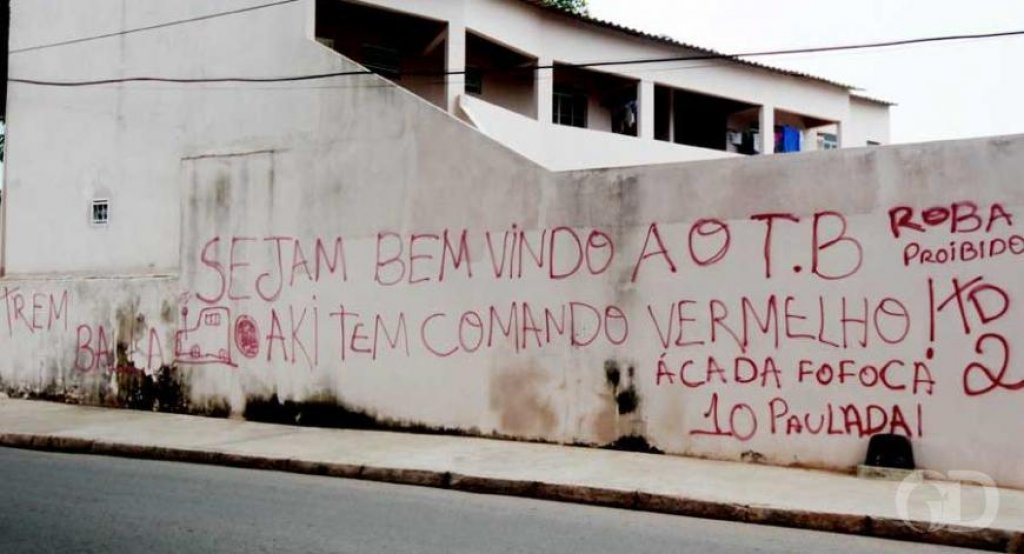 SEJAM BEM VINDO AO T.B
ROBA
PROIBIDO
TREM
BALA
AKI TEM COMANDO VERMELHO!
TD
2
ÁCADA FOFOCA
10 PAULADA!
GD